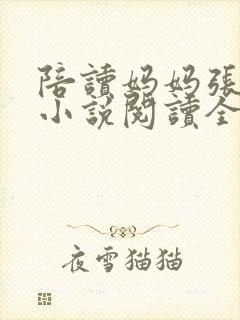 陪讀妈妈張
小說閱讀全
夜雪猫猫